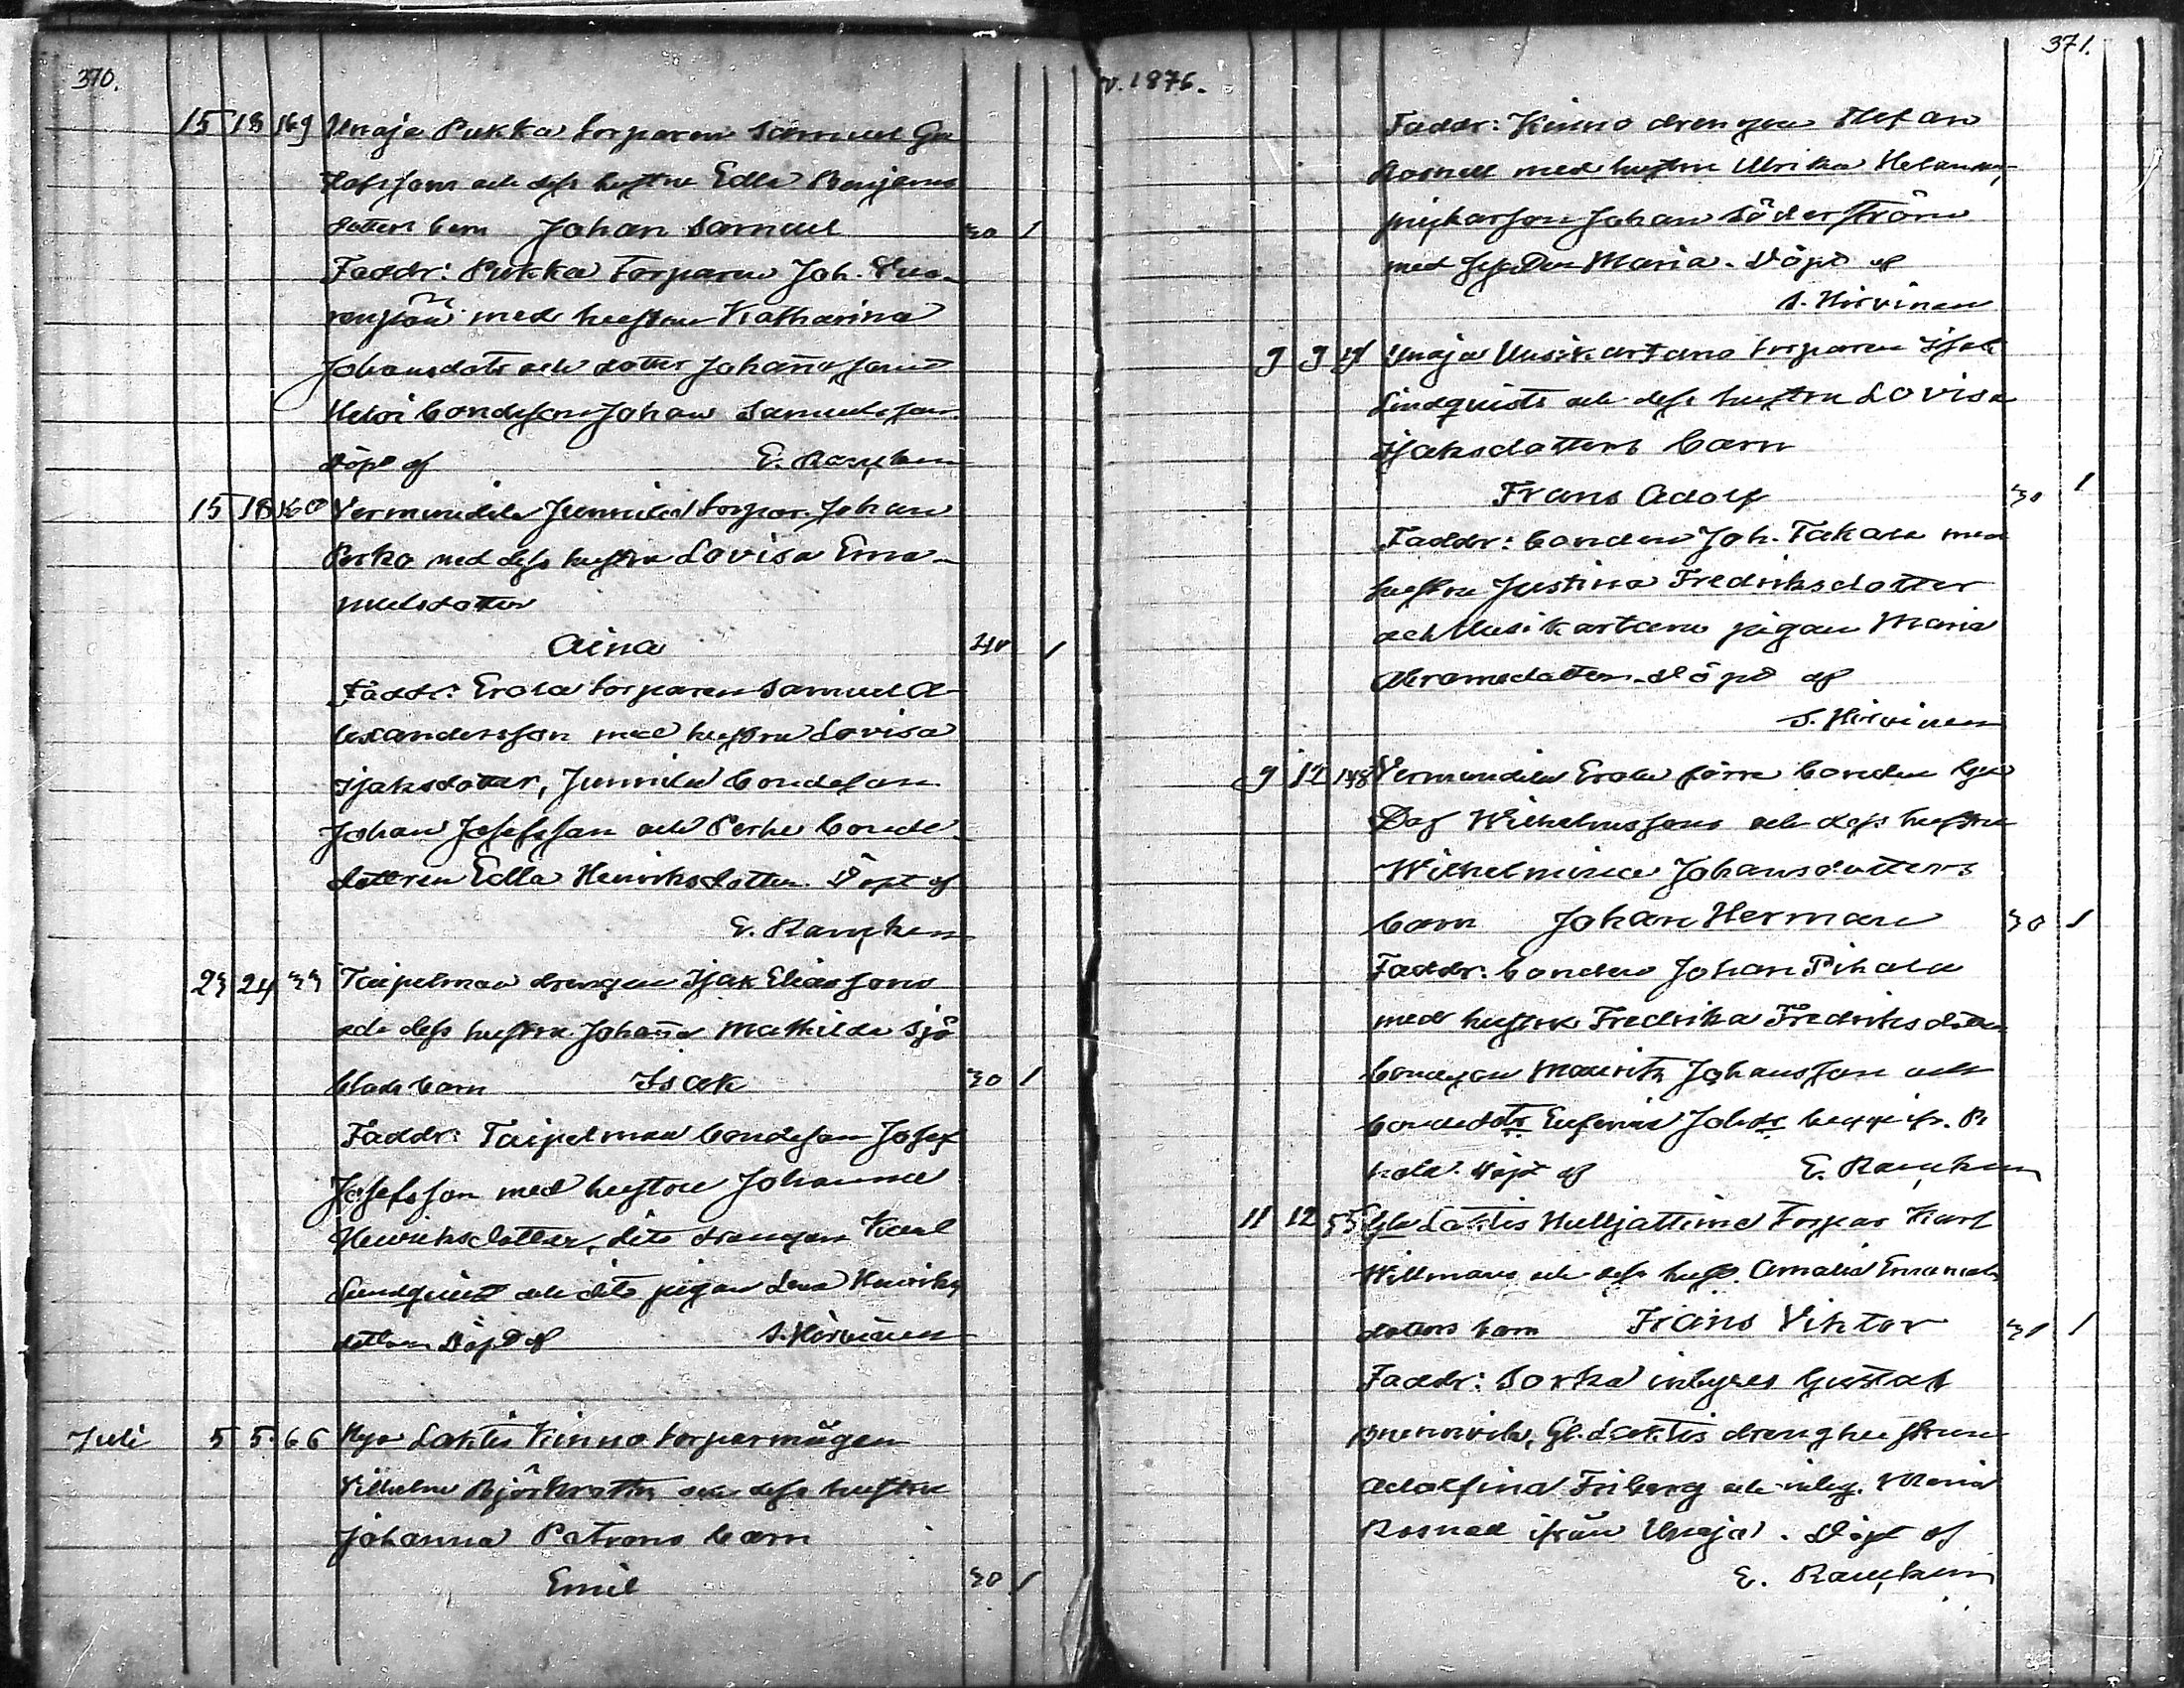 370.
15 18 169 Unaja Pukka torparen Samuel Gu
stafssons och dess hustru Edla Benjams
dotters barn Johan Samuel 30 1
Faddr: Pukka torparen Joh.
med hustrun Katharina
Johansdotr och dotter Johanna samt
Heloi bondeson Johan Samuelsson
döpt af E. Rancken
15 18 160 Vermundila Junnila torpar. Johan
Perko med dess hustru Lovisa Ema-
nuelsdotter
Aina 40 1
Faddr: Erola torparen Samuel A-
lexandersson med hustru Lovisa
Isaksdotter, Junnila bondeson
Johan Josefsson och Perho bonde-
dottren Edla Henriksdotter. Döpt af
E. Rancken
23 24 33 Taipelmaa drengen Isak Eliassons
och dess hustru Johanna Mathilda Sjö
blads barn Isak 30 1
Faddr: Taipelmaa bondeson Josef
Josefsson med hustru Johanna
Henriksdotter, dito drengen Karl
Lundquist och dito pigan Lena Henriks
dotter Döpt af S. Hirvinen
Juli 5 5 66 Nya Laktis Kinno torparmågen
Vilhelm Björkrath och dess hustru
Johanna Patrons barn
Emil 30 1
v. 1876.
371.
Faddr: Kinno drengen Stefan
Rosnell med hustru Ulrika Helander,
Johan Söderström
med Maria. Döpt af
S. Hirvinen
9 9 Unaja Uusikartano torparen Isak
Lindquists och dess hustru Lovisa
Isaksdotters barn
Frans Adolf 30 1
Faddr: bonden Joh. Takala med
hustru Justina Fredriksdotter
och Uusikartano pigan Maria
Abramsdotter. Döpt af
S. Hirvinen
9 12 148 Vermundila Erola förre bonden Gus
taf Wilhelmssons och dess hustru
Wilhelmina Johansdotters
barn Johan Herman 30 1
Faddr: bonden Johan Pihala
med hustru Fredrika Fredriksdotter
bondeson Mauritz Johansson och
bondedotr Eufemia Johdr bägge ifr. Pi
hala. Döpt af E. Rancken
11 12 55 Gla Laktis Hulljattima Torpar Karl
Willmans och dess hust. Amalia Emanuels
dotters barn Frans Viktor 31 1
Faddr: Sorka inhyses Gustaf
Gl. Laktis dränghustrun
Adolfina Friberg och inhy. Maria
Rosnell ifrån Unaja. Döpt af
E. Rancken